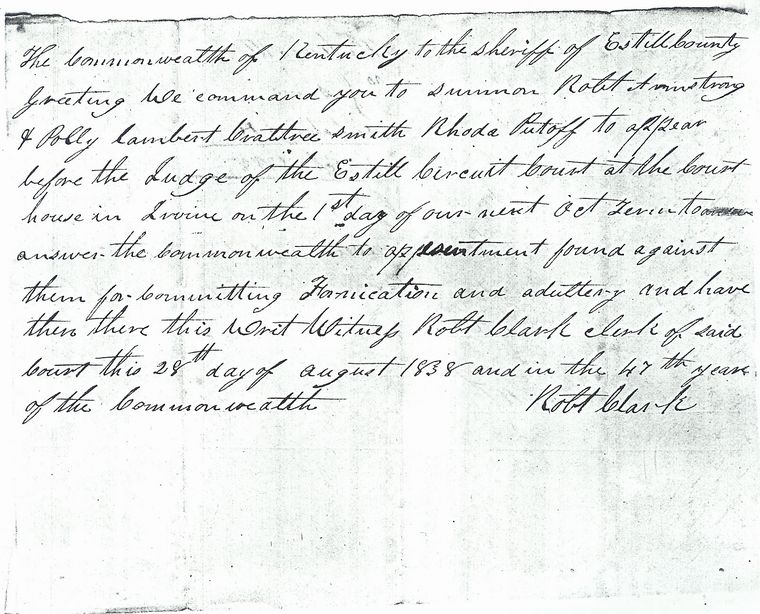 The Commonwealth of Kentucky to the sheriff of Estill County
Greeting We command you to summon Robt Armstrong
& Polly Lambert Crabtree smith Rhoda Putoff to appear
before the Judge of the Estill Circuit Court at the Court
house in Irvine on the 1st day of our next Oct Term to
answer the Commonwealth to a presentment found against
them for Committing Fornication and adultery and have
then there this Writ Witness Robt Clark clerk of said
Court this 28th day of august 1838 and in the 47th year
of the Commonwealth Robt Clark